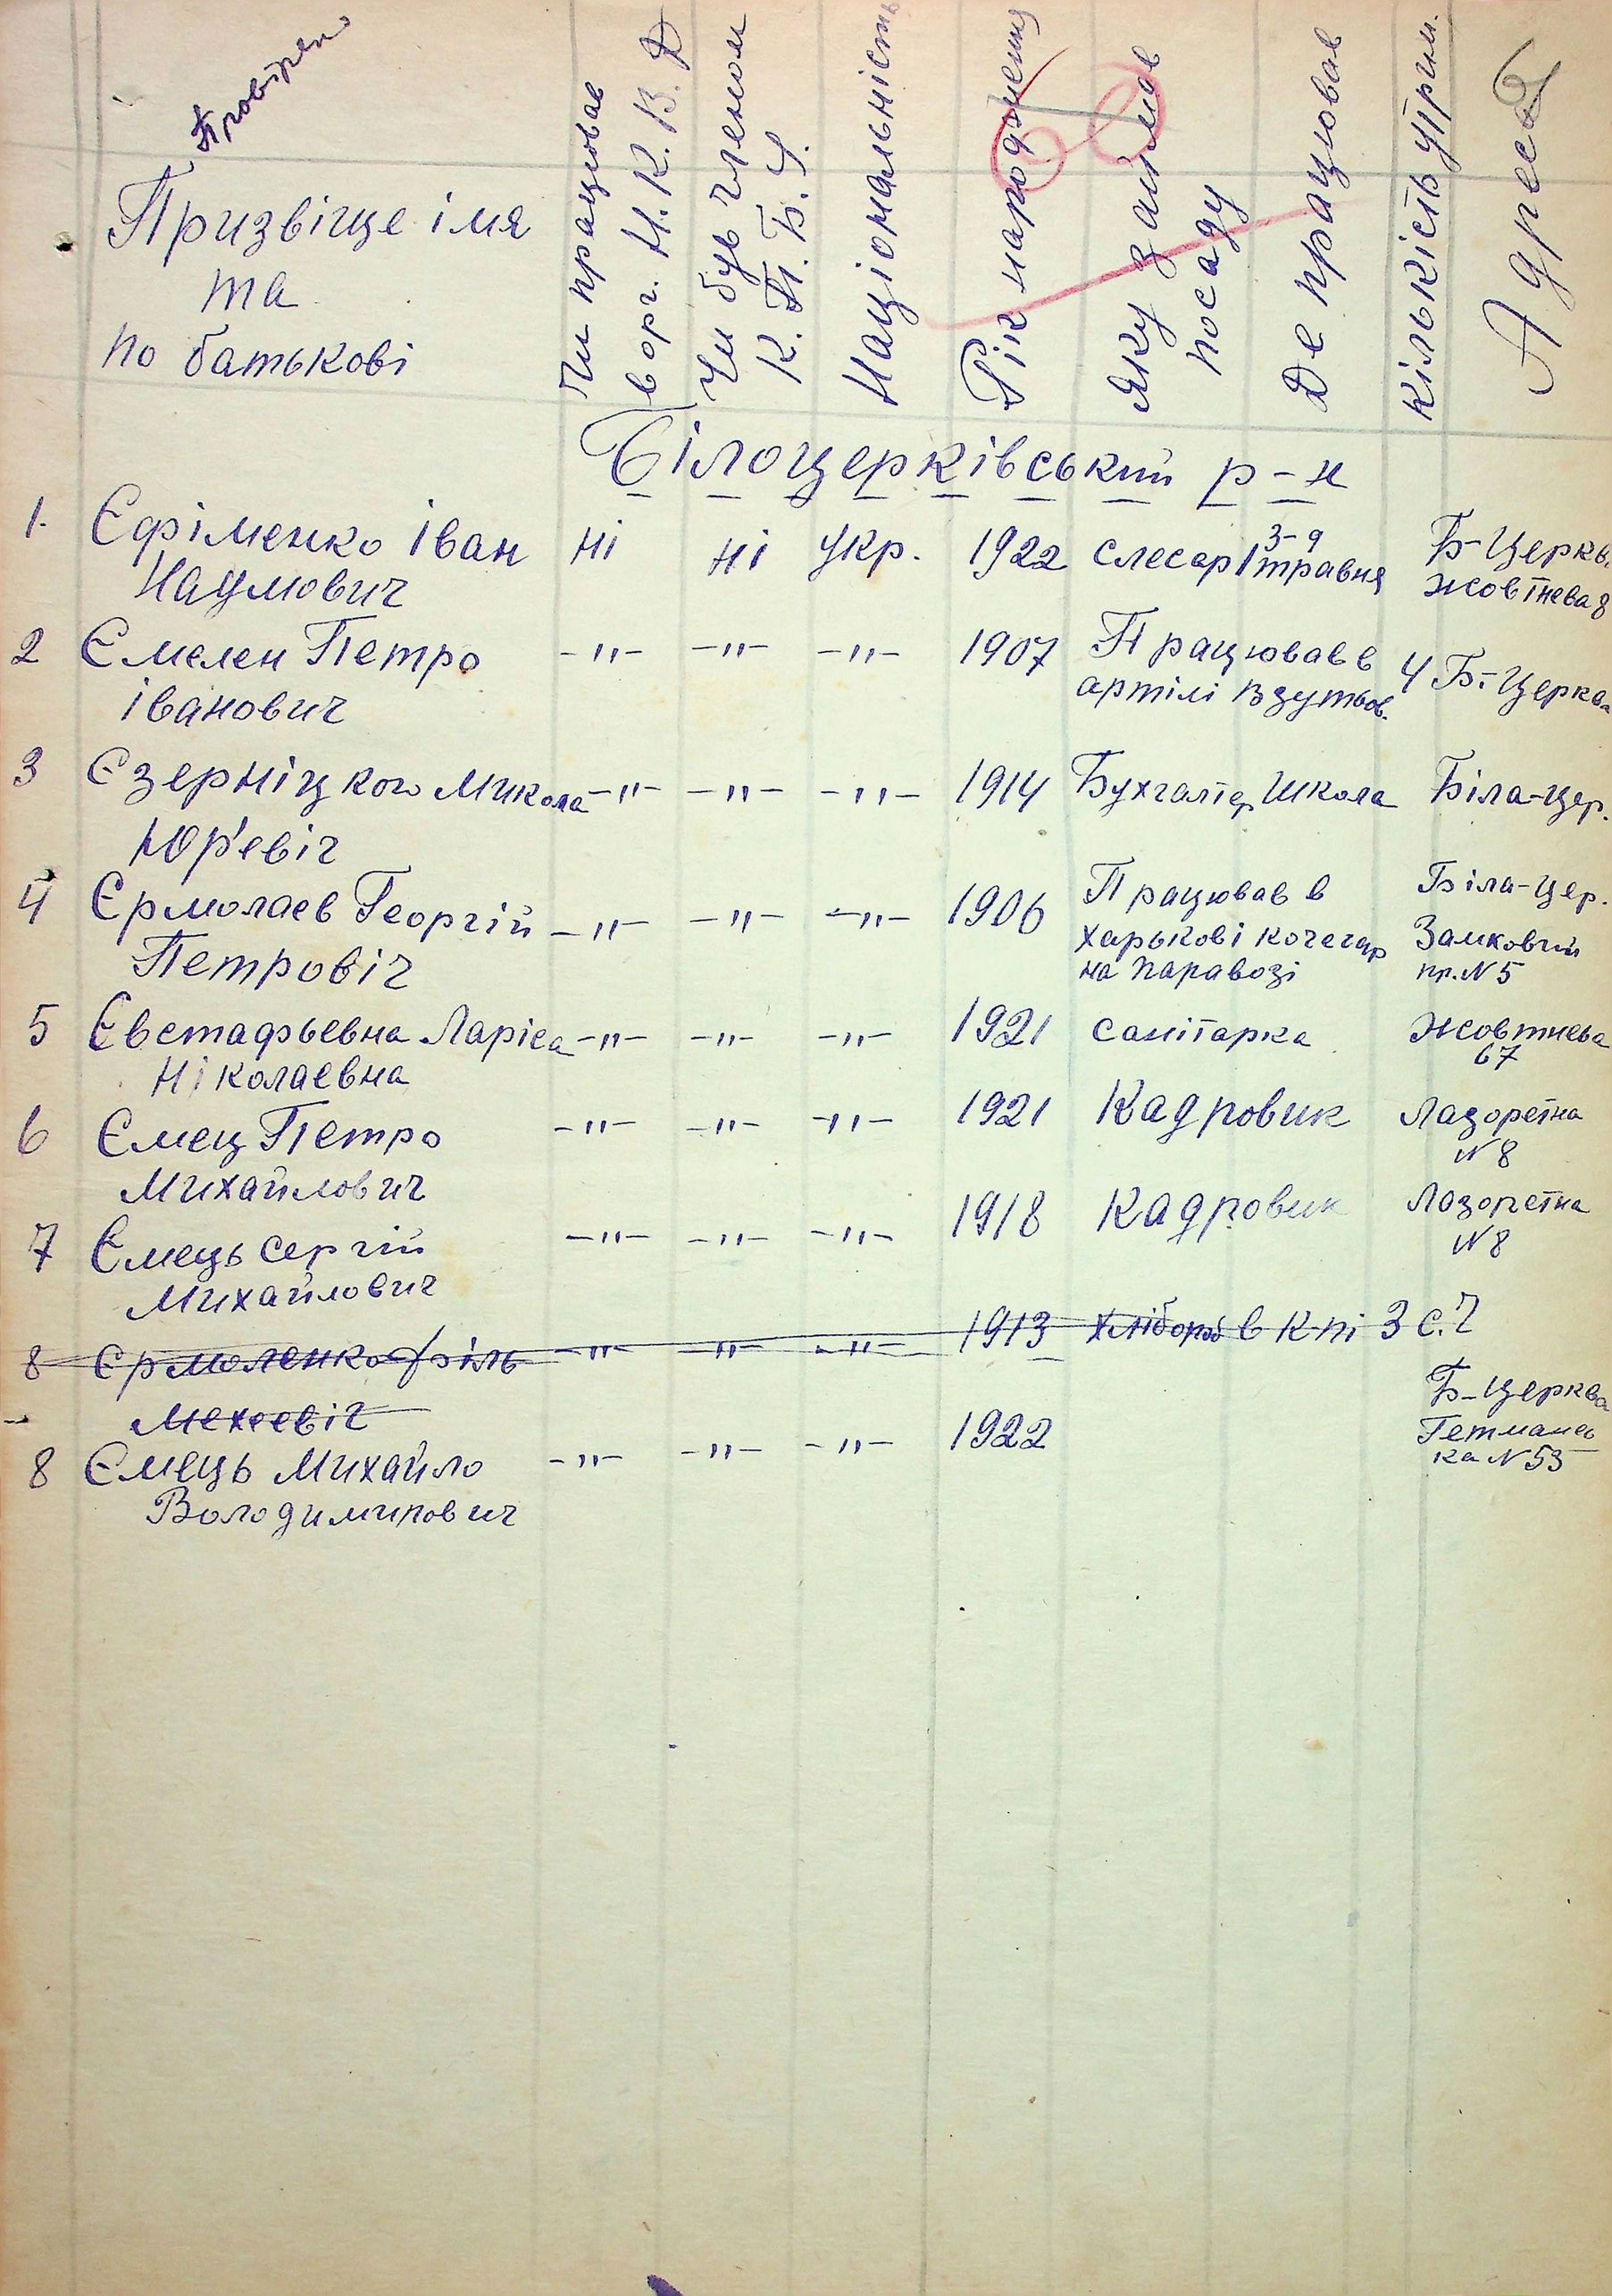 Провірен
Призвіще імя
та
по батькові
Чи працював
в орг. Н.К.В.Д
Чи був членом
К.П.Б.У.
Національність
Рік народження
Яку займав
посаду
Де працював
Кількість утрим.
Адреса
Білоцерківський р-н
1. Єфіменко Іван ні ні укр. 1922 слесар 3-д Б-Церкв.
Наумович 1 травня жовтнева 8
2 Ємелен Петро -"- -"- -"- 1907 Працював в 4 Б.-Церква
Іванович артілі взутьов.
3 Єзерніцкого Микола -"- -"- -"- 1914 Бухгалтер Школа Біла-цер.
Юр'евіч
4 Єрмолаев Георгій -"- -"- -"- 1906 Працював в Біла-цер.
Петровіч харькові кочегар Замковий
на паравозі пр. N 5
5 Євстафьевна Ларіса -"- -"- -"- 1921 санітарка Жовтнева
Ніколаевна 67
6 Ємец Петро -"- -"- -"- 1921 Кадровик Лазоретна
Михайлович N 8
7 Ємець Сергій -"- -"- -"- 1918 Кадровик Лазоретна
Михайлович N 8
8 Єрмоленко -"- -"- -"- 1913 хлібороб в к-пі 3 с.
8 Ємець Михайло -"- -"- -"- 1922 Б-Церква
Володимирович Гетмансь
ка N 53